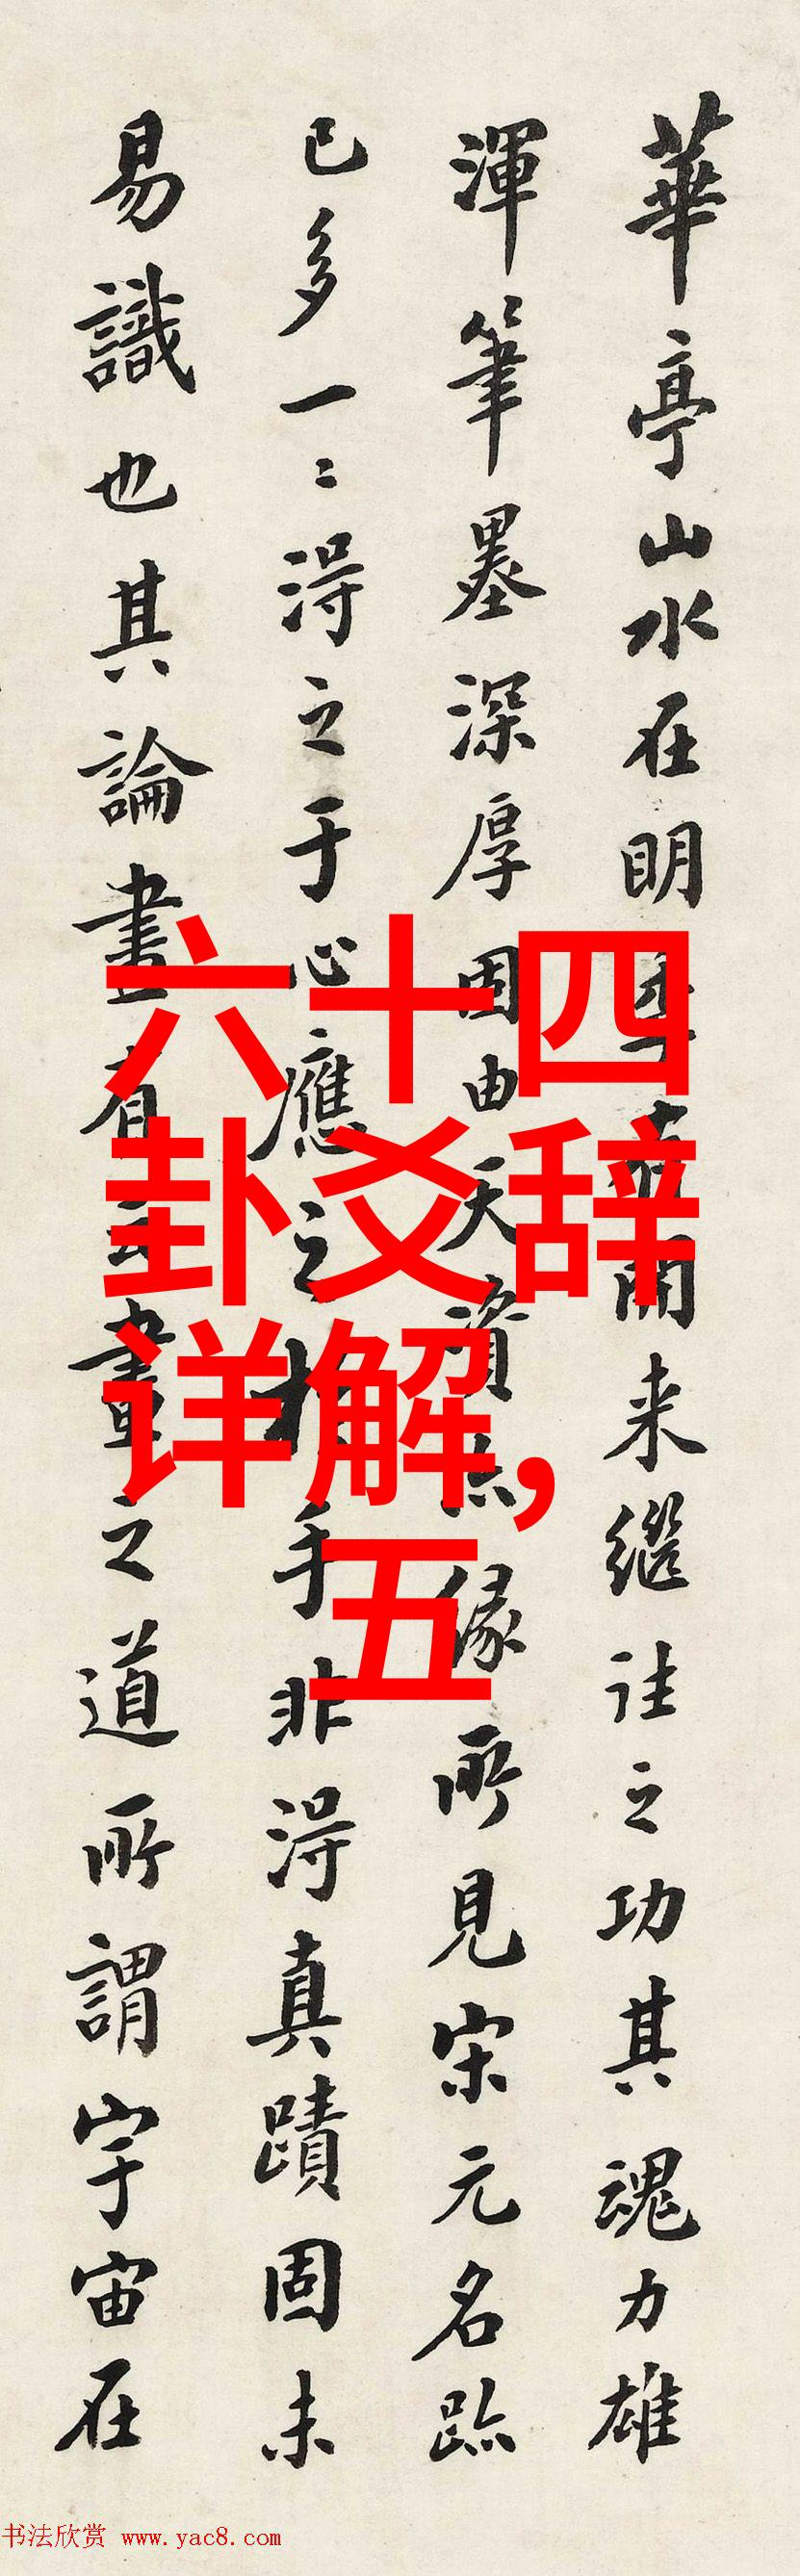 華亭山水在明季開来継往之功其魂力雄
渾筆墨深厚固由天資亦縁所見宋元名跡
已多一〻得之于心應之于手非得真蹟固未
易識也其論畫有云畫之道所謂宇宙在
六十四
卦爻辞
详解,
五
书法欣赏 www.yac8.com